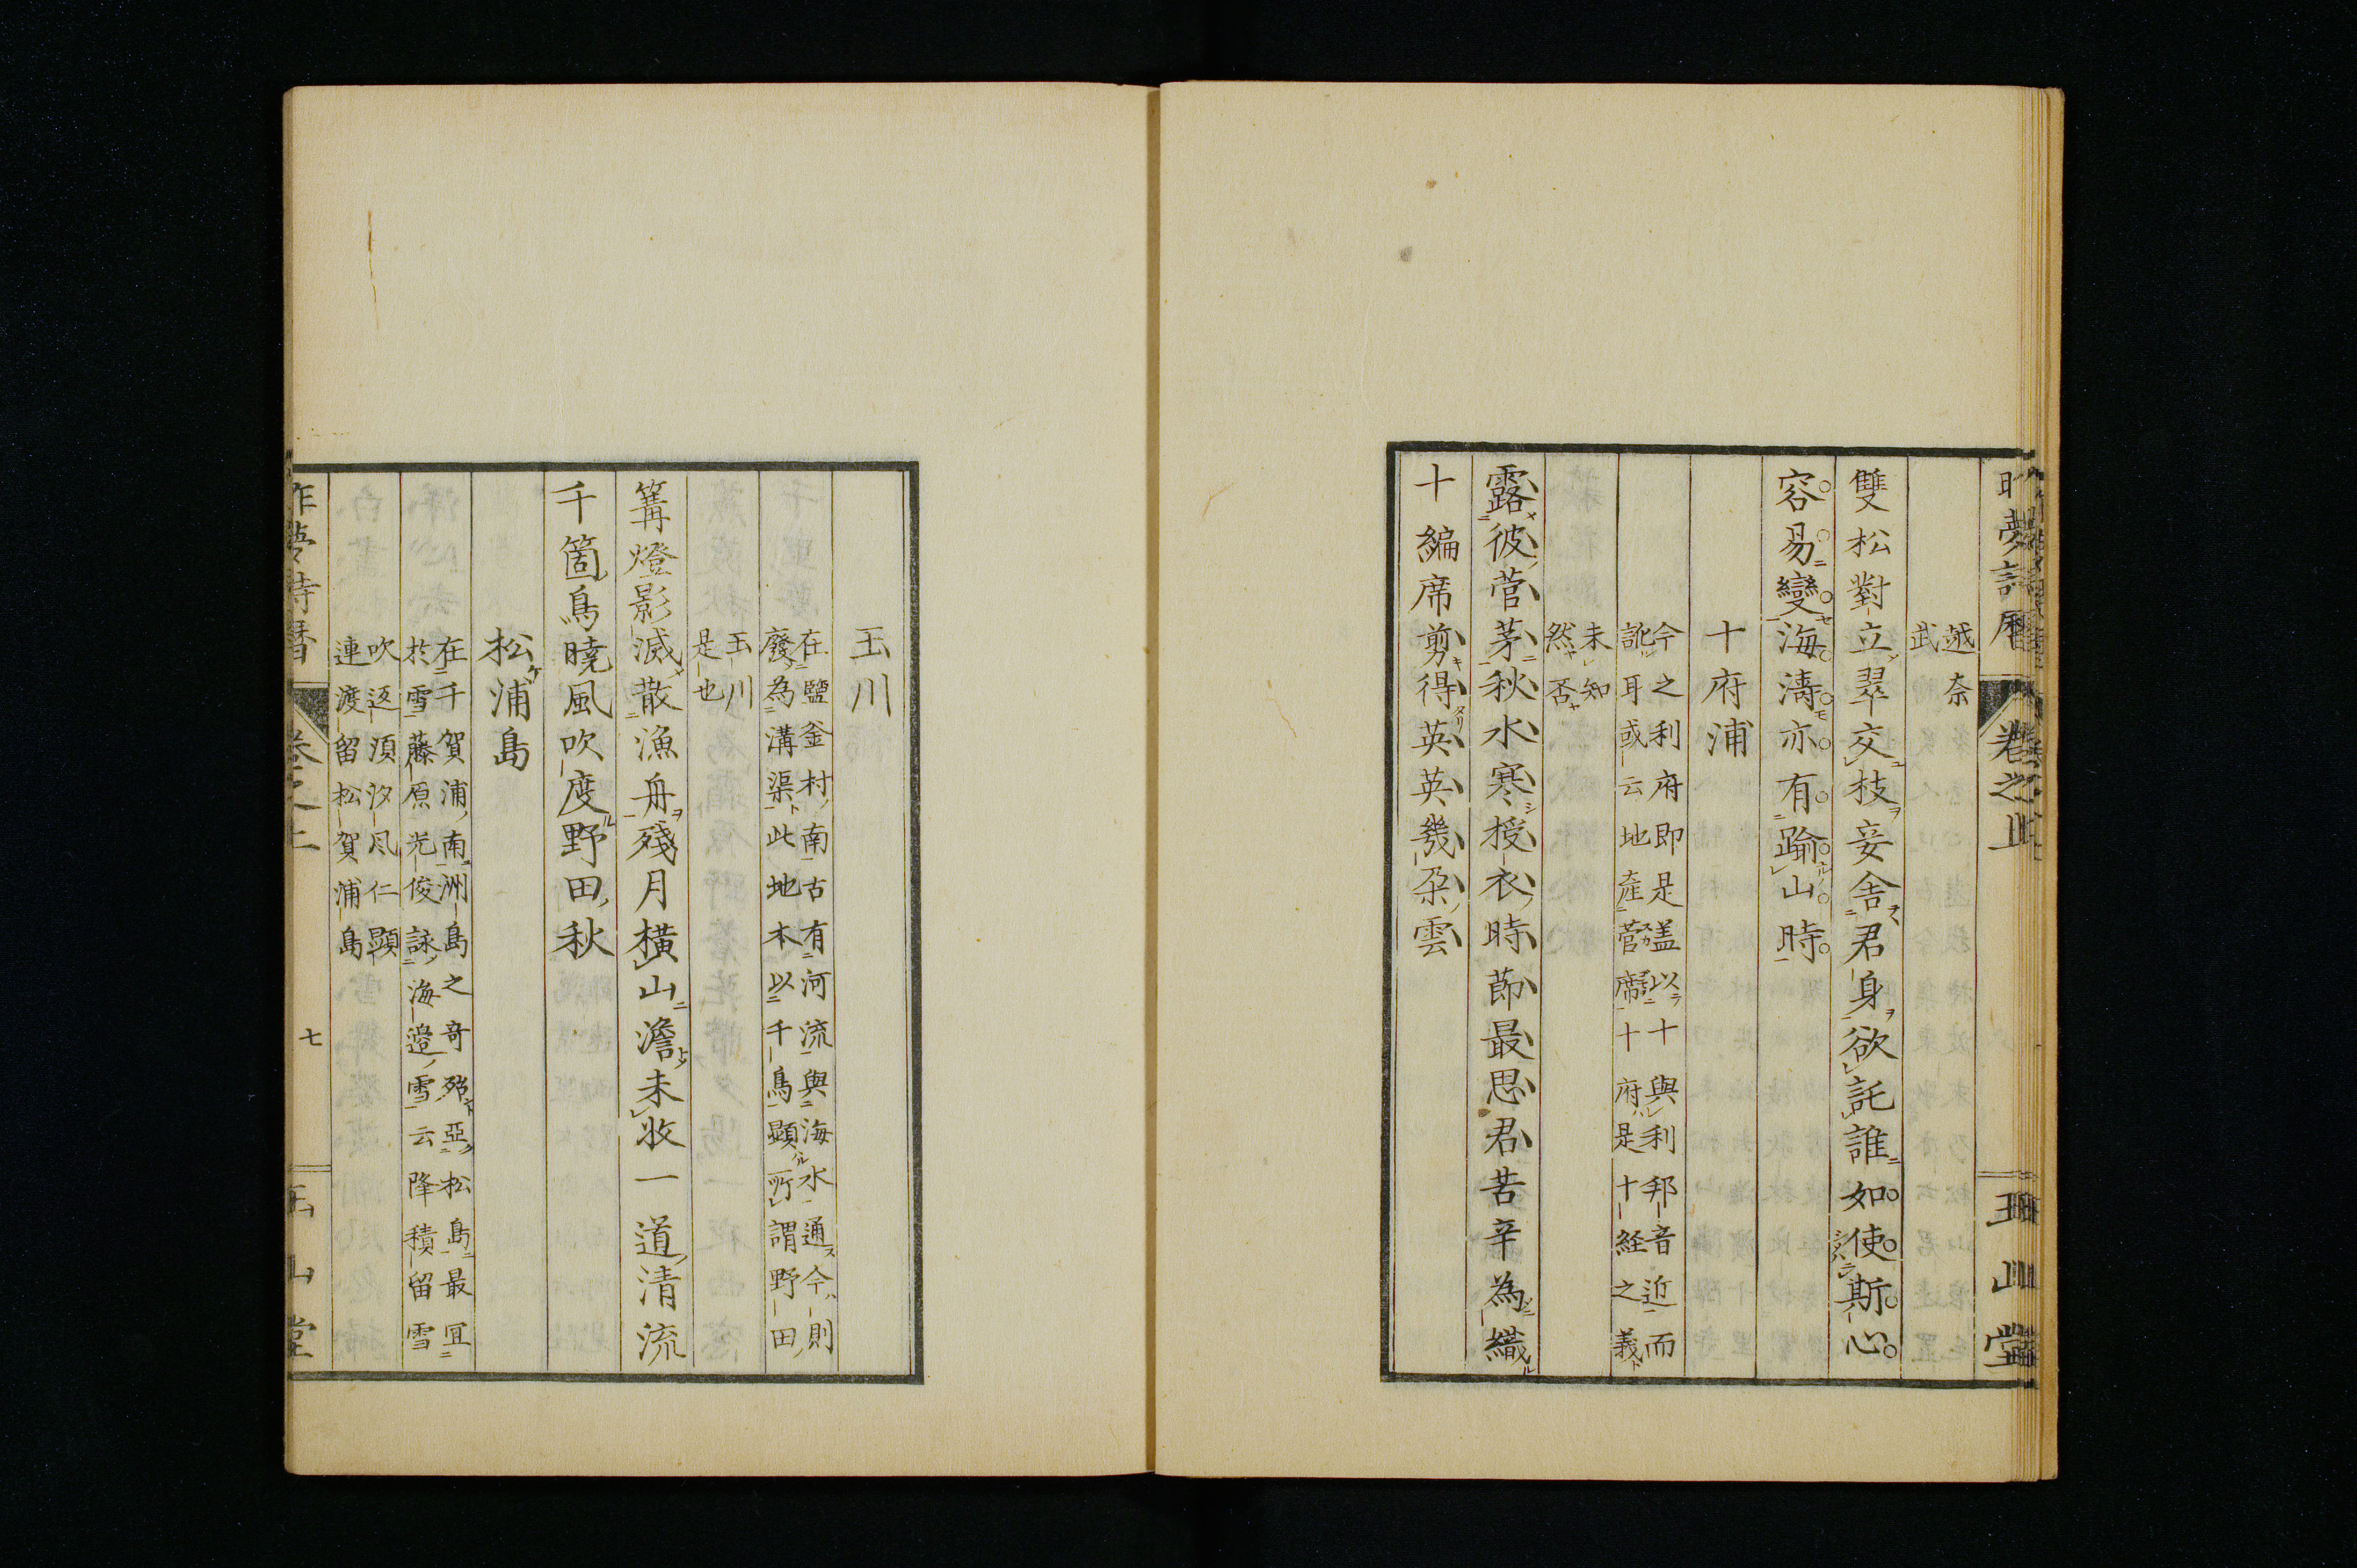 越奈
武
雙松對立翠交枝妾舎君身欲託誰如使斯心
容易變海濤亦有踰山時
十府浦
今之利府即是盖以十與利邦音近而
訛耳或云地産菅席十府是十経之義
未知
然否
露彼菅茅秋水寒授衣時節最思君苦辛為織
十編席剪得英英幾朶雲
玉川
在鹽釜村南古有河流與海水通今則
廢為溝渠此地本以千鳥顕所謂野田
玉川
是也
篝燈影滅散漁舟殘月横山澹未收一道清流
千箇鳥曉風吹度野田秋
松浦島
在千賀浦南洲島之奇殆亞松島最冝
於雪藤原光俊詠海邉雪云降積留雪
吹返須汐風仁顕
連渡留松賀浦島
昨夢詩暦
卷之上
七
玉山堂